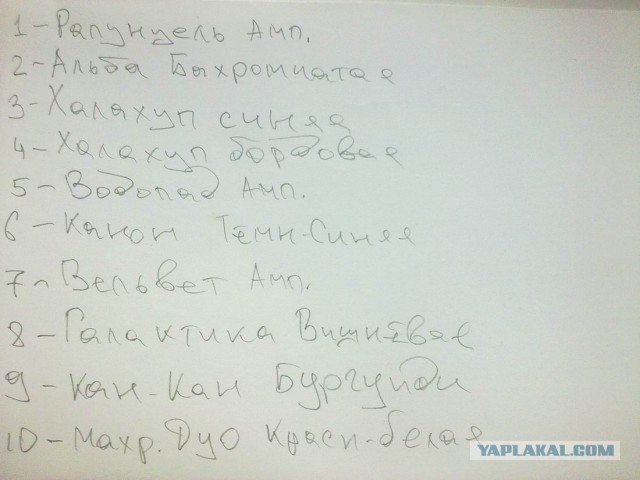 1-Рапунцель Амп.
2-Альба Быхромчатая
3-Халахуп синяя
4-Халахуп бордовая
5-Водопад Амп.
6-Канон Темн-Синяя
7-Вельвет Амп.
8-Галактика Вишнёвая
9-Кан-Кан Бургунди
10-Махр. Дуо Красн-белая
YAPLAKAL.COM